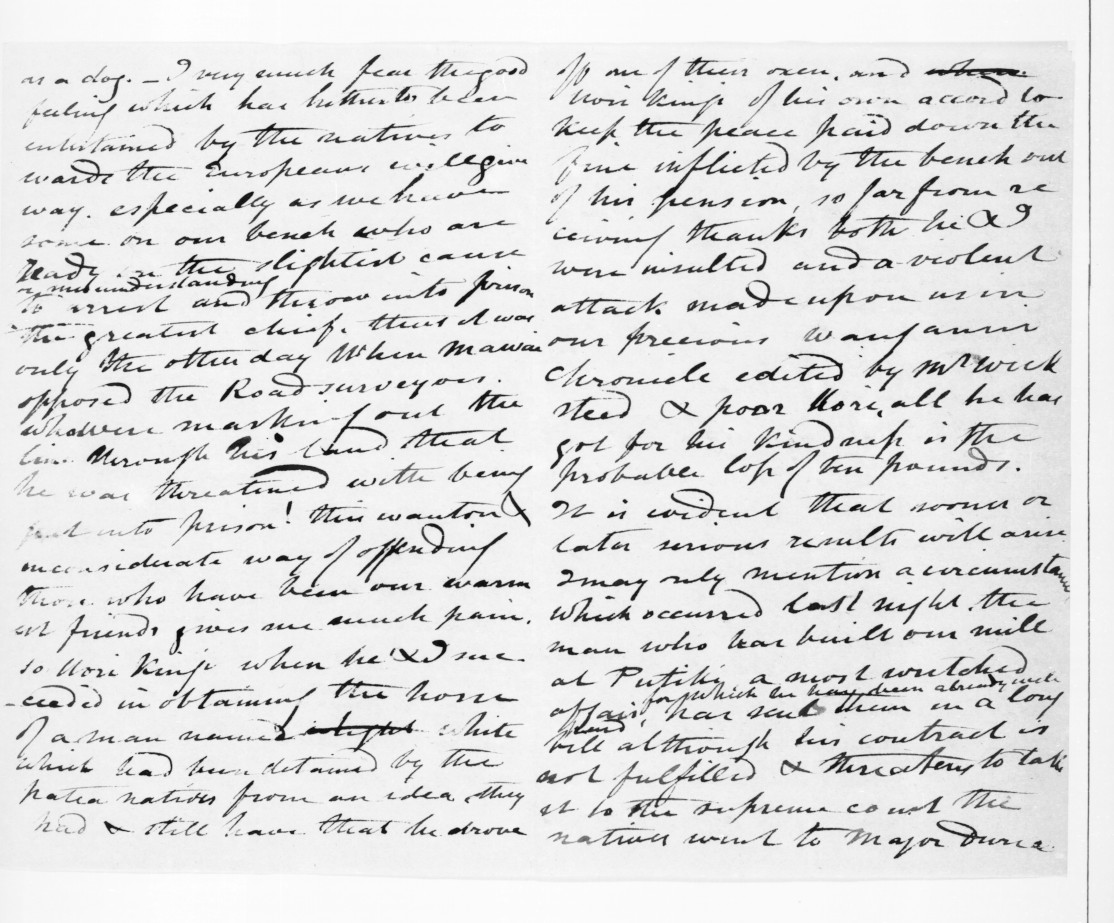 as a dog. – I very much fear the good
feeling which has hitherto been
entertained by the natives to
wards the Europeans will give
way. especially as we have
some on our bench who are
ready on the slightest cause
or misunderstanding
to arrest and throw into prison
the greatest chief. thus it was
only the other day when Mawai
opposed the Road surveyors.
who were marking out the
line through his land that
he was threatened with being
put into prison! this wanton &
inconsiderate way of offending
those who have been our warm
est friends gives me much pain.
so Hori Kingi when he & I suc
-ceeded in obtaining the horse
of a man named white
which had been detained by the
Patea natives from an idea they
had & still have that he drove
off one of their oxen, and when
Hori Kingi of his own accord to
keep the peace paid down the
fine inflicted by the bench out
of his pension, so far from re
ceiving thanks both he & I
were insulted and a violent
attack made upon us in
our precious Wanganui
Chronicle edited by Mr Wick
steed & poor Hori, all he has
got for his kindness is the
probable loss of ten pounds.
It is evident that sooner or
later serious results will arise
I may only mention a circumstance
which occurred last night. the
man who has built our mill
at Putiki a most wretched
for which he has been already well
affair, has sent them in a long
paid
bill although his contract is
not fulfilled & threatens to take
it to the supreme court the
natives went to Major Durie